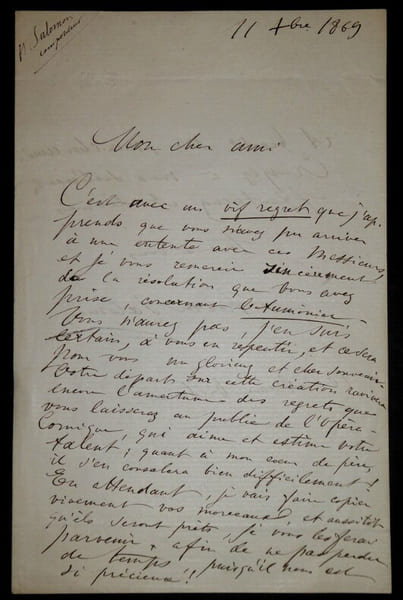 H. Salomon
compositeur
11 Xbre 1869
Mon cher ami
C'est avec un vif regret que j'ap-
prends que vous n'avez pu arriver
à une entente avec ces Messieurs,
et je vous remercie sincèrement
de la résolution que vous avez
prise, concernant l'Aumônier -
Vous n'aurez pas, j'en suis
certain, à vous en repentir, et ce sera
pour vous un glorieux et cher souvenir.
Votre départ sur cette création ravivera
encore l'amertume des regrets que
vous laisserez au public de l'Opéra-
Comique, qui aime et estime votre
talent; quant à mon coeur de père,
il s'en consolera bien difficilement!
En attendant, je vais faire copier
vivement vos morceaux, et aussitôt
qu'ils seront prêts, je vous les ferai
parvenir, afin de ne pas perdre
de temps, puisqu'il nous est
si précieux!